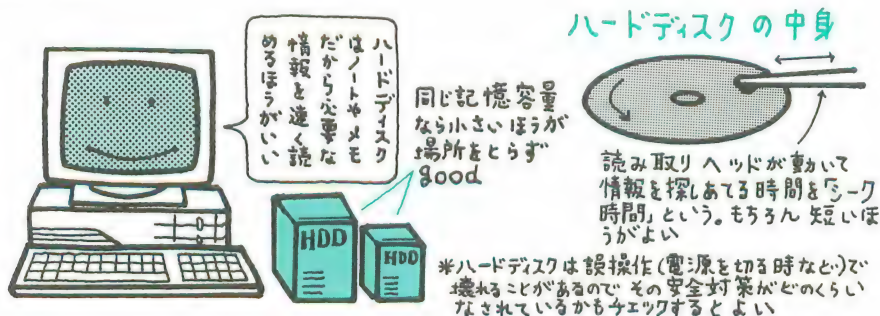 ハードディスク
はノートやメモ
だから必要な
情報を速く読
めるほうがいい
同じ記憶容量
なら小さいほうが
場所をとらず
good
HDD
HDD
ハードディスクの中身
読み取りヘッドが動いて
情報を探しあてる時間を「シーク
時間」という。もちろん短いほ
うがよい
*ハードディスクは誤操作(電源を切る時など)で
壊れることがあるのでその安全対策がどのくらい
なされているかもチェックするとよい